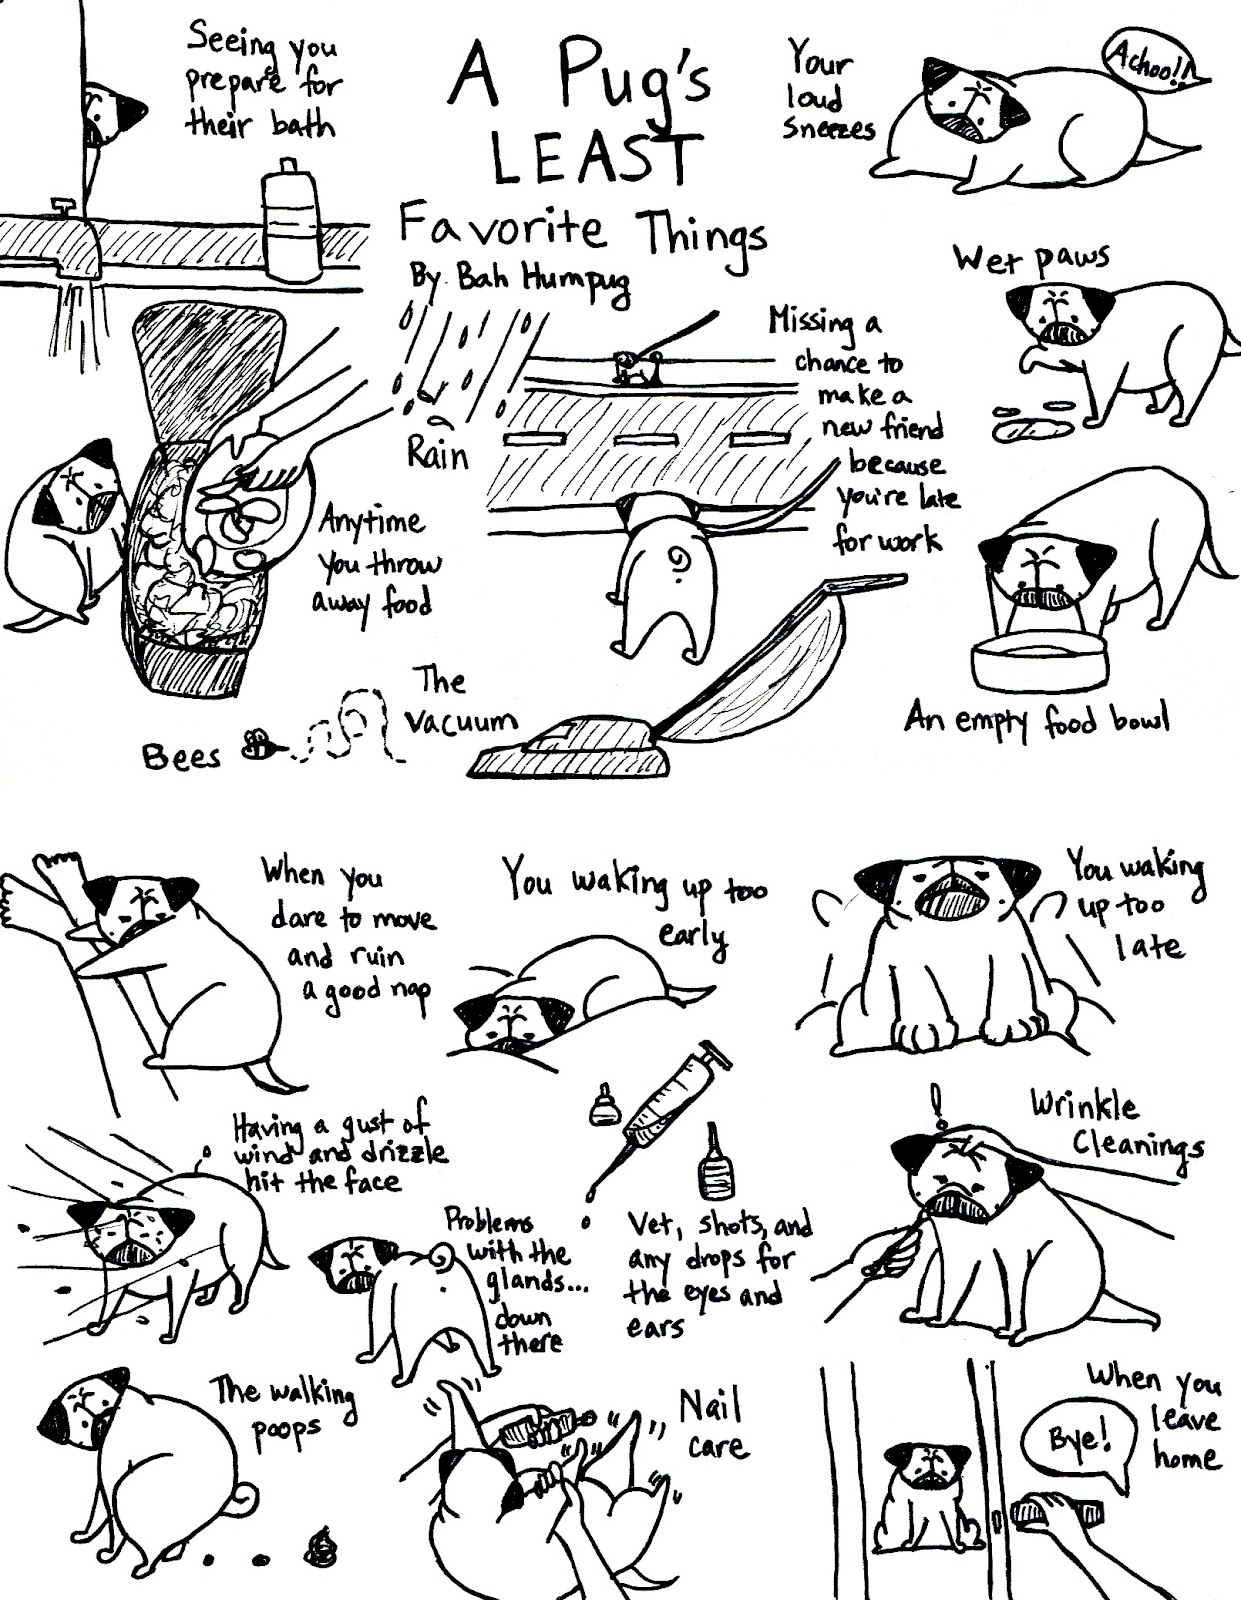 A Pug's
LEAST
Favorite Things
By Bah Humpug
Seeing you
prepare for
their bath
Your
loud
Sneezes
Achoo!!
Wet paws
Rain
Missing a
chance to
make a
new friend
because
you're late
for work
Anytime
you throw
away food
An empty food bowl
The
vacuum
Bees
When you
dare to move
and ruin
a good nap
You waking up too
early
You waking
up too
late
Having a gust of
wind and drizzle
hit the face
Wrinkle
Cleanings
Problems
with the
glands...
down
there
Vet, shots, and
any drops for
the eyes and
ears
The walking
poops
Nail
care
When you
leave
home
Bye!